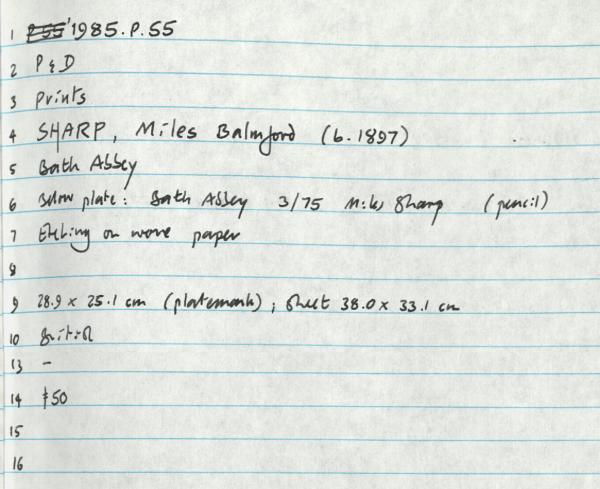 1 P 55 1985.P.55
2 P & D
3 Prints
4 SHARP, Miles Balmford (b. 1897)
5 Bath Abbey
6 Below plate: Bath Abbey 3/75 Miles Sharp (pencil)
7 Etching on wove paper
8
9 28.9 x 25.1 cm (platemark); sheet 38.0 x 33.1 cm
10 British
13 -
14 £50
15
16